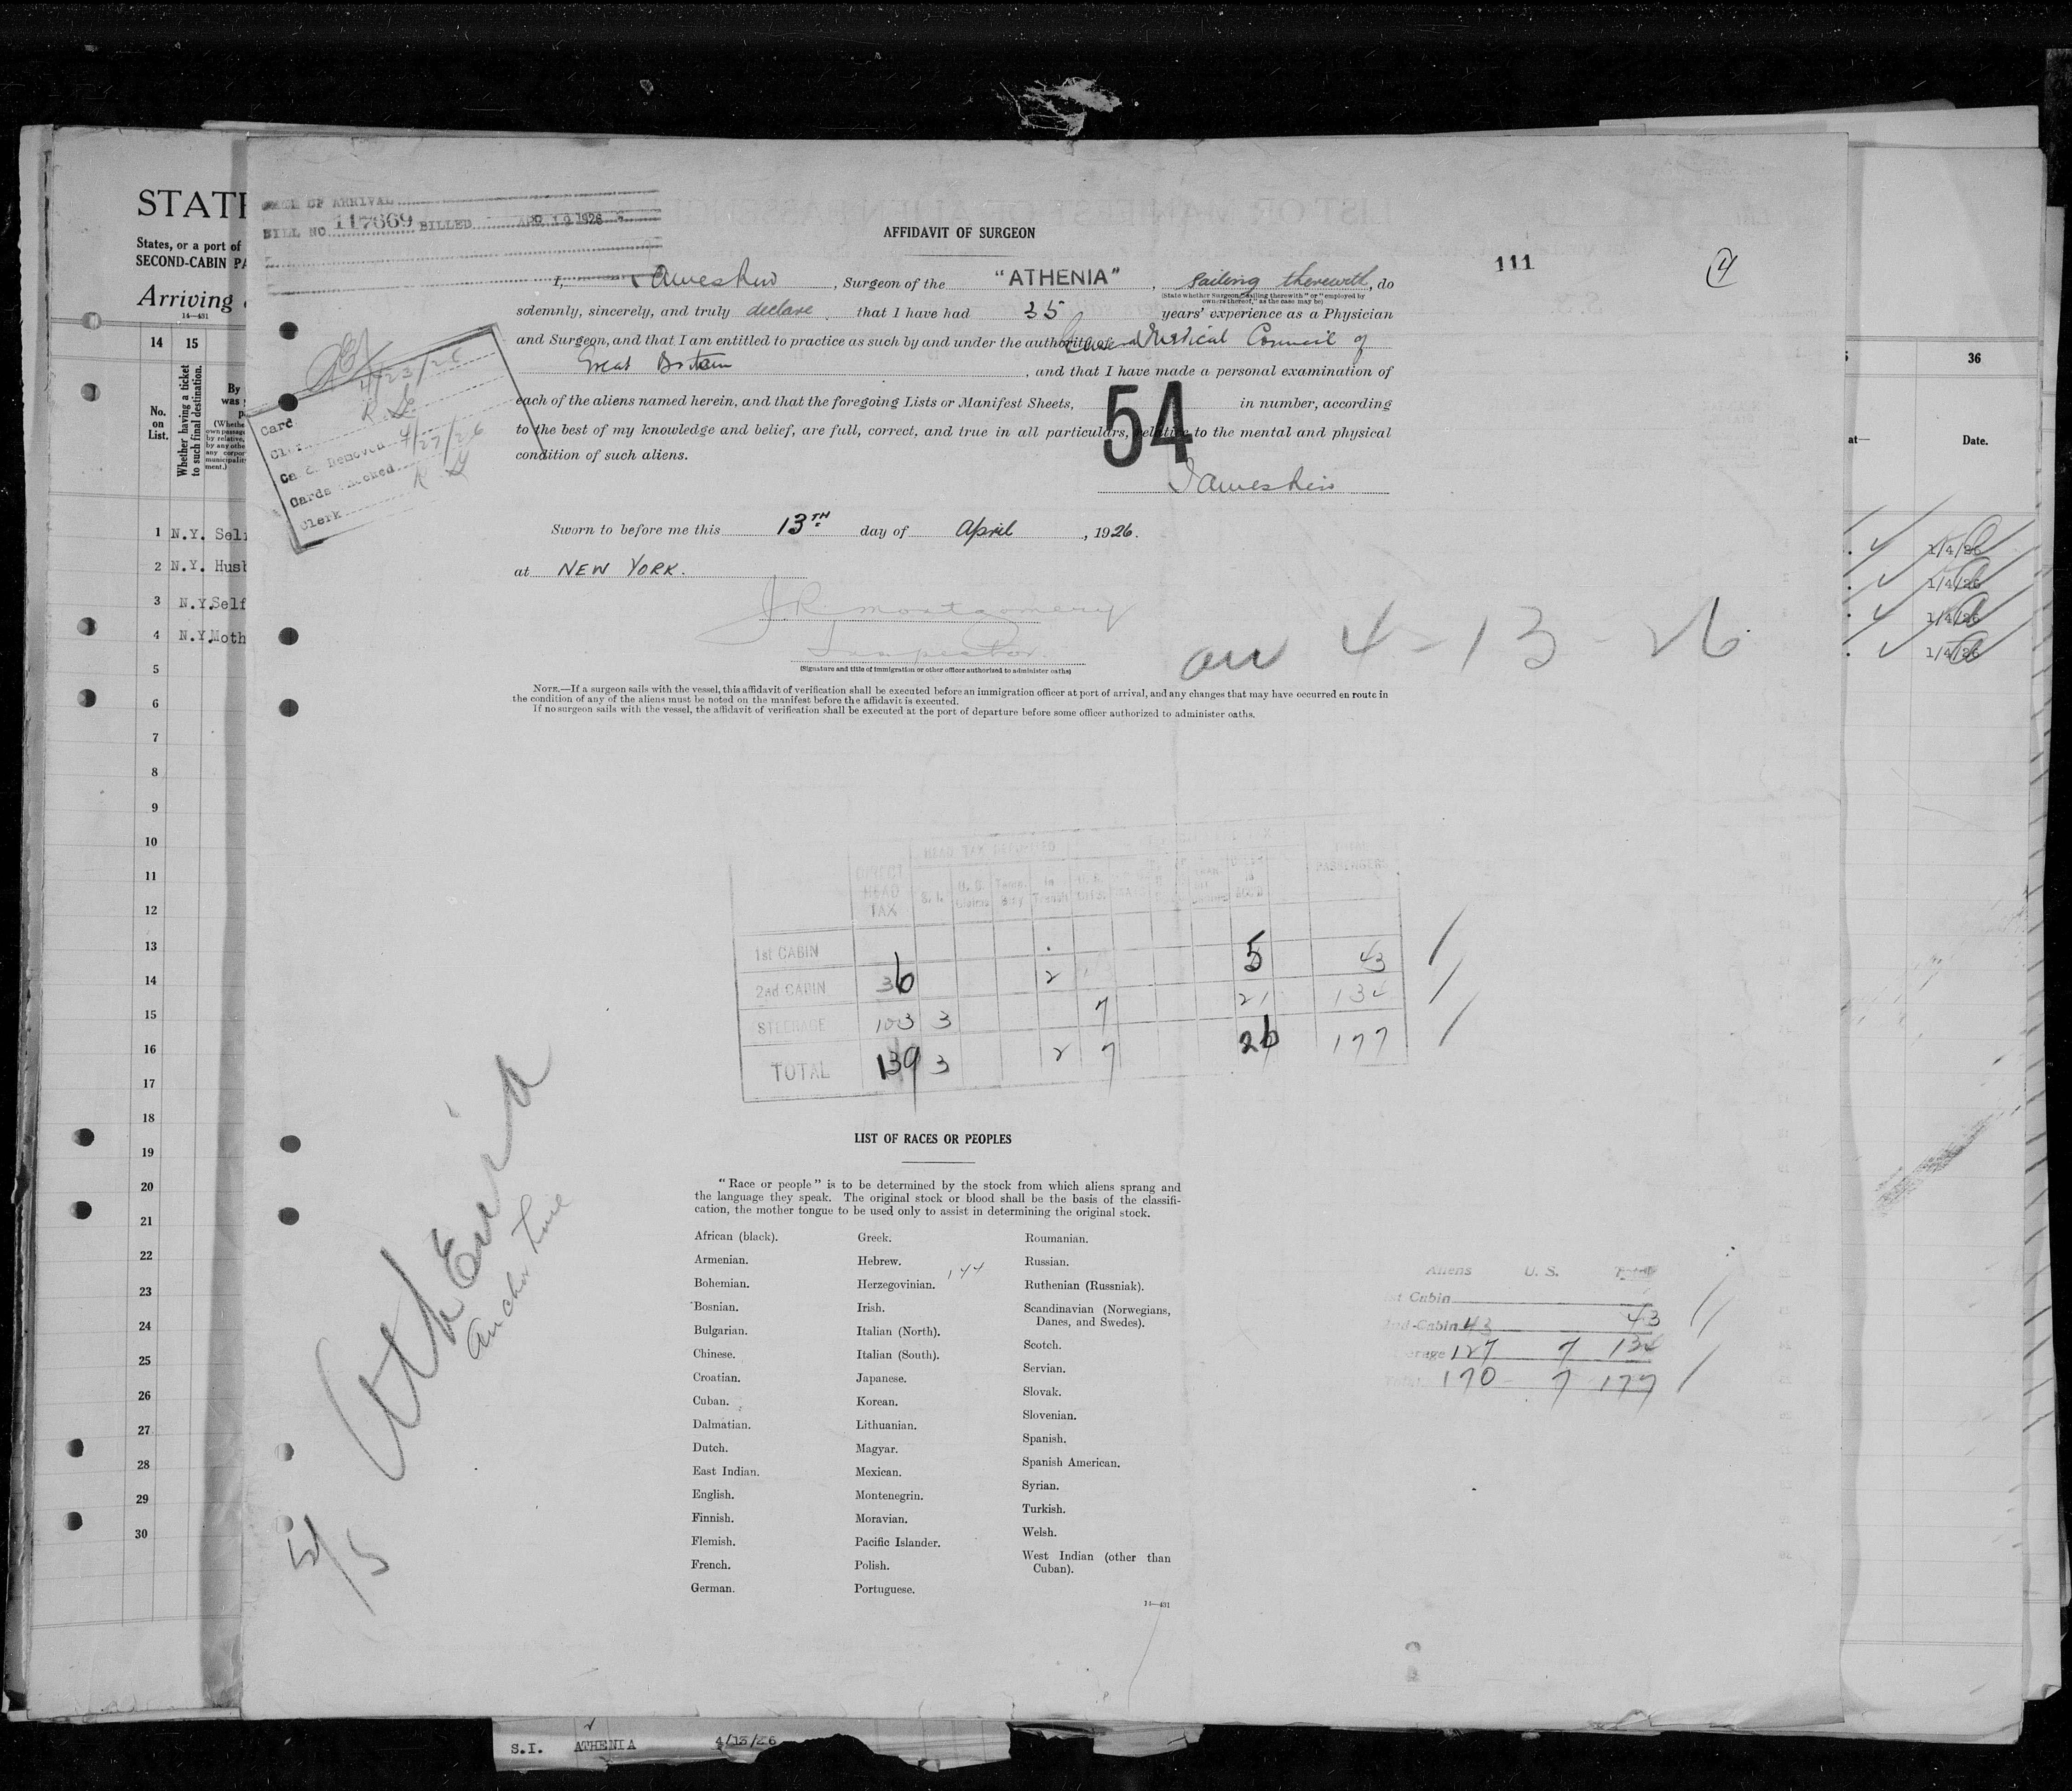 STATE
States, or a port of
SECOND-CABIN PA
Arriving
14—431
14 15
No. on List.
Whether having a ticket to such final destination.
1 N.Y. Self
2 N.Y. Husb
3 N.Y. Self
4 N.Y. Moth
5
6
7
8
9
10
11
12
13
14
15
16
17
18
19
20
21
22
23
24
25
26
27
28
29
30
OF ARRIVAL
BILL NO 117669 BILLED APR 19 1926
4/23/26
Card
R
Cards Removed 4/27/26
Cards Checked
Clerk
AFFIDAVIT OF SURGEON
111
4
I, , Surgeon of the "ATHENIA", sailing therewith, do
(State whether Surgeon "sailing therewith" or "employed by
owners thereof," as the case may be)
solemnly, sincerely, and truly declare, that I have had 35 years' experience as a Physician
and Surgeon, and that I am entitled to practice as such by and under the authority of General Medical Council of
Great Britain, and that I have made a personal examination of
each of the aliens named herein, and that the foregoing Lists or Manifest Sheets, 54 in number, according
to the best of my knowledge and belief, are full, correct, and true in all particulars, relative to the mental and physical
condition of such aliens.
Sworn to before me this 13TH day of April, 1926.
at NEW YORK.
J R Montgomery
Inspector.
(Signature and title of immigration or other officer authorized to administer oaths)
4-13-26
NOTE.—If a surgeon sails with the vessel, this affidavit of verification shall be executed before an immigration officer at port of arrival, and any changes that may have occurred en route in
the condition of any of the aliens must be noted on the manifest before the affidavit is executed.
If no surgeon sails with the vessel, the affidavit of verification shall be executed at the port of departure before some officer authorized to administer oaths.
HEAD TAX DEPOSITED
DIRECT HEAD TAX
S. I.
U. S. Citizens
In Transit
TOTAL PASSENGERS
1st CABIN
2nd CABIN 36 2 5 43
STEERAGE 103 3 7 21 134
TOTAL 139 3 2 7 26 177
LIST OF RACES OR PEOPLES
"Race or people" is to be determined by the stock from which aliens sprang and
the language they speak. The original stock or blood shall be the basis of the classifi-
cation, the mother tongue to be used only to assist in determining the original stock.
African (black).
Armenian.
Bohemian.
Bosnian.
Bulgarian.
Chinese.
Croatian.
Cuban.
Dalmatian.
Dutch.
East Indian.
English.
Finnish.
Flemish.
French.
German.
Greek.
Hebrew.
Herzegovinian. 144
Irish.
Italian (North).
Italian (South).
Japanese.
Korean.
Lithuanian.
Magyar.
Mexican.
Montenegrin.
Moravian.
Pacific Islander.
Polish.
Portuguese.
Roumanian.
Russian.
Ruthenian (Russniak).
Scandinavian (Norwegians,
Danes, and Swedes).
Scotch.
Servian.
Slovak.
Slovenian.
Spanish.
Spanish American.
Syrian.
Turkish.
Welsh.
West Indian (other than
Cuban).
14—431
Athenia
Anchor Line
Aliens U. S. Total
1st Cabin
2nd-Cabin 43 43
erage 127 7 134
170 7 177
36
at— Date.
1/4/26
1/4/26
1/4/26
1/4/26
S.I. ATHENIA 4/13/26